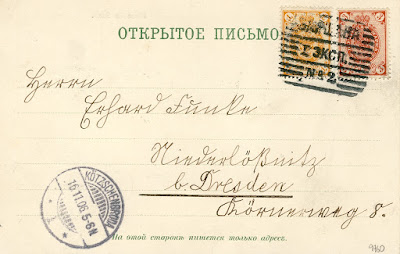 ОТКРЫТОЕ ПИСЬМО
ВАРШАВА
I ЭКСП.
№ 2
Herrn
Erhard Funke
Niederlößnitz
b. Dresden
Körnerweg 8.
KÖTZSCHENBRODA
16.11.06. 5-6N.
На этой сторонѣ пишется только адресъ.